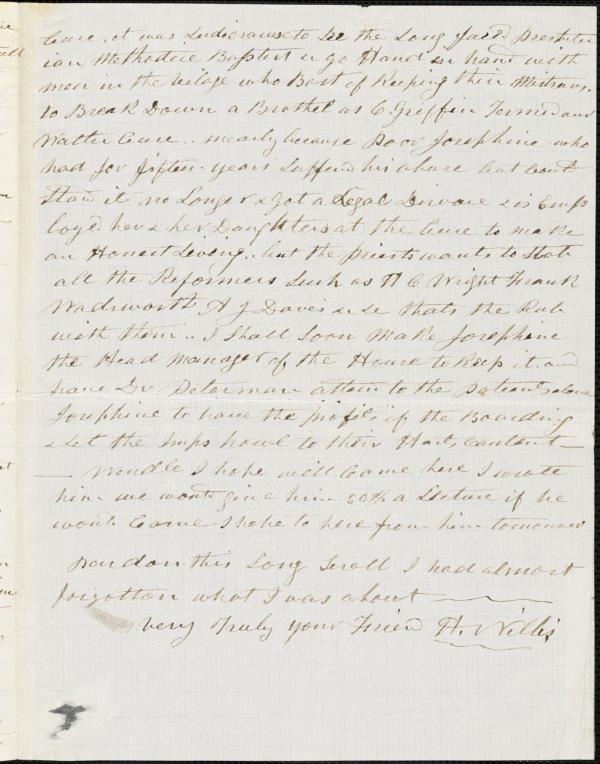 Cure, it was Ludicrous to See the Long faced Presbiter
ian Methodice Baptist &c go Hand in hand with
men in the village who Bost of Keeping their Mistress.
to Break Down a Brothel as C. Griffin Termed our
Watter Cure .. mearly because Poor Josephine who
had for fifteen years Sufferd his abuse but Could
Stan it no Longer & Got a Legal Divorce & is Emp
loyed her & her Daughters at the Cure to make
an Honest Living .. but the Priests wants to Stab
all the Reformers Such as H C Wright Frank
Wadsworth A J Davis &c &c thats the Rub
with them .. I Shall Soon Make Josephine
the Head Manager of the House to Keep it and
have Dr Peterman atten to the patients alone
Josephine to have the profits of the Boarding
& Let the Imps howl to their Harts Content —
— Wendle I hope will Came here I wrote
him we would give him 50 a Lecture if he
would Came I hope to here from him tomorrow
Pardon this Long Scroll I had almost
forgotton what I was about
very Truly your Friend H. Willis